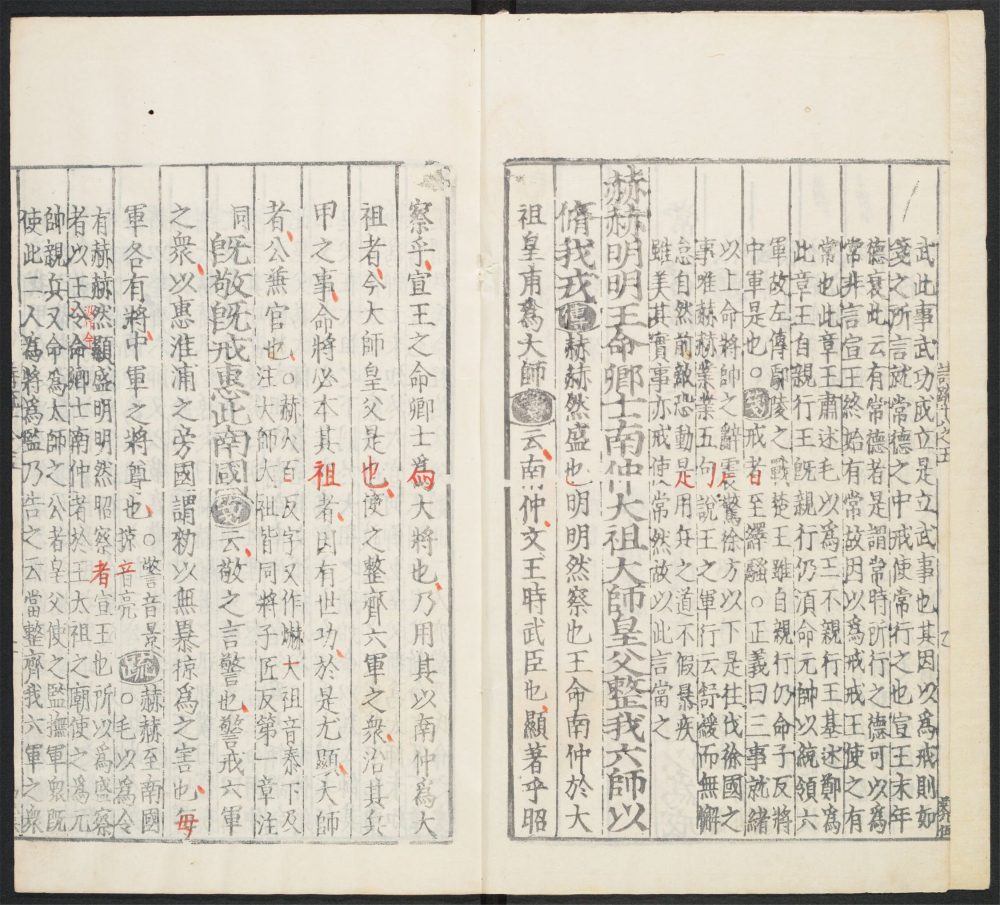 武此事武功成立是立武事也其因以爲戒則如
箋之所言就常德之中戒使常行之也宣王末年
德衰此云有常德者是謂常時所行之德可以爲
常非言宣王終始有常故因以爲戒戒王使之有
常也此章王肅述毛以爲王不親行王基述鄭爲
此章王自親行王旣親行仍須命元帥以統領六
軍故左傳鄢陵之戰楚王雖自親行仍命子反將
中軍是也○戒者至繹騷○正義曰三事就緒
以上命將帥之辭震驚徐方以下是往伐徐國之
事唯赫赫業業五句說王之軍行云舒緩而無懈
怠自然前敵恐動是用兵之道不假暴疾
雖美其實事亦戒使常然故以此言當之
赫赫明明王命卿士南仲大祖大師皇父整我六師以
脩我戎傳赫赫然盛也明明然察也王命南仲於大
祖皇甫爲大師云南仲文王時武臣也顯著乎昭
察乎宣王之命卿士爲大將也乃用其以南仲爲大
祖者今大師皇父是也使之整齊六軍之衆治其兵
甲之事命將必本其祖者因有世功於是尤顯大師
者公兼官也注大師大祖皆同將子匠反第一章注
○赫火百反字又作爀大祖音泰下及
同旣敬旣戒惠此南國云敬之言警也警戒六軍
之衆以惠淮浦之旁國謂勑以無暴掠爲之害也每
軍各有將中軍之將尊也○警音景掠音亮疏赫赫至南國○毛以爲
有赫赫然顯盛明明然昭察者宣王也所以爲盛察
者以王令命卿士南仲者於王太祖之廟使之爲元
帥親兵又命爲太師之公者皇父使之監撫軍衆旣
使此二人爲將爲監乃告之云當整齊我六軍之衆